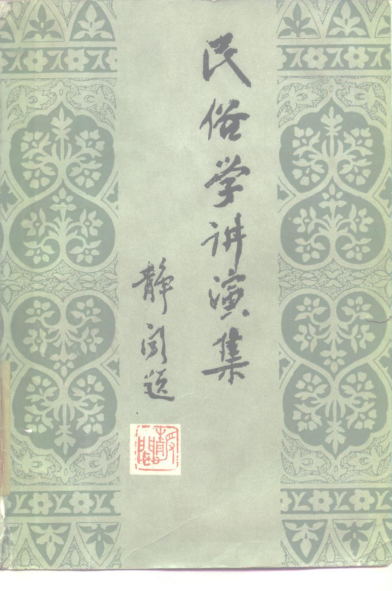 民俗学讲演集
静闻题